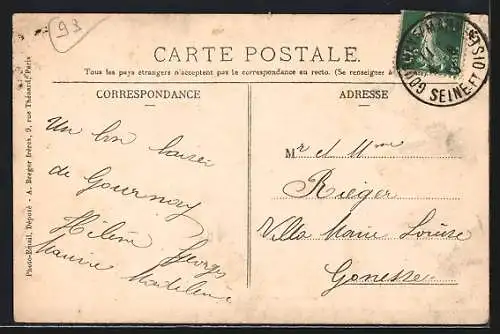 93
CARTE POSTALE.
Tous les pays étrangers n'acceptent pas la correspondance au recto. (Se renseigner à
CORRESPONDANCE
ADRESSE
Un bon baiser
de Gournay
Hélène Georges
Maurice Madeleine
Mr et Mme
Rieger
Villa Marie Louise
Gonesse
Photo-Émail, Déposé - A. Breger frères, 9, rue Thénard, Paris
SEINE-ET-OISE